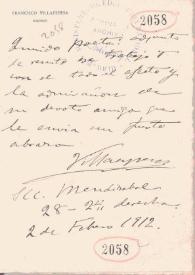 FRANCISCO VILLAESPESA
MADRID
2058
2058
Querido poeta: adjunto
se remito
con el todo el afecto y
la admiración de
su devoto amigo que
le envia un fuerte
abrazo
Villaespesa
S/c. Mendizabal
28 - 2º derecha.
2 de Febrero 1912.
2058